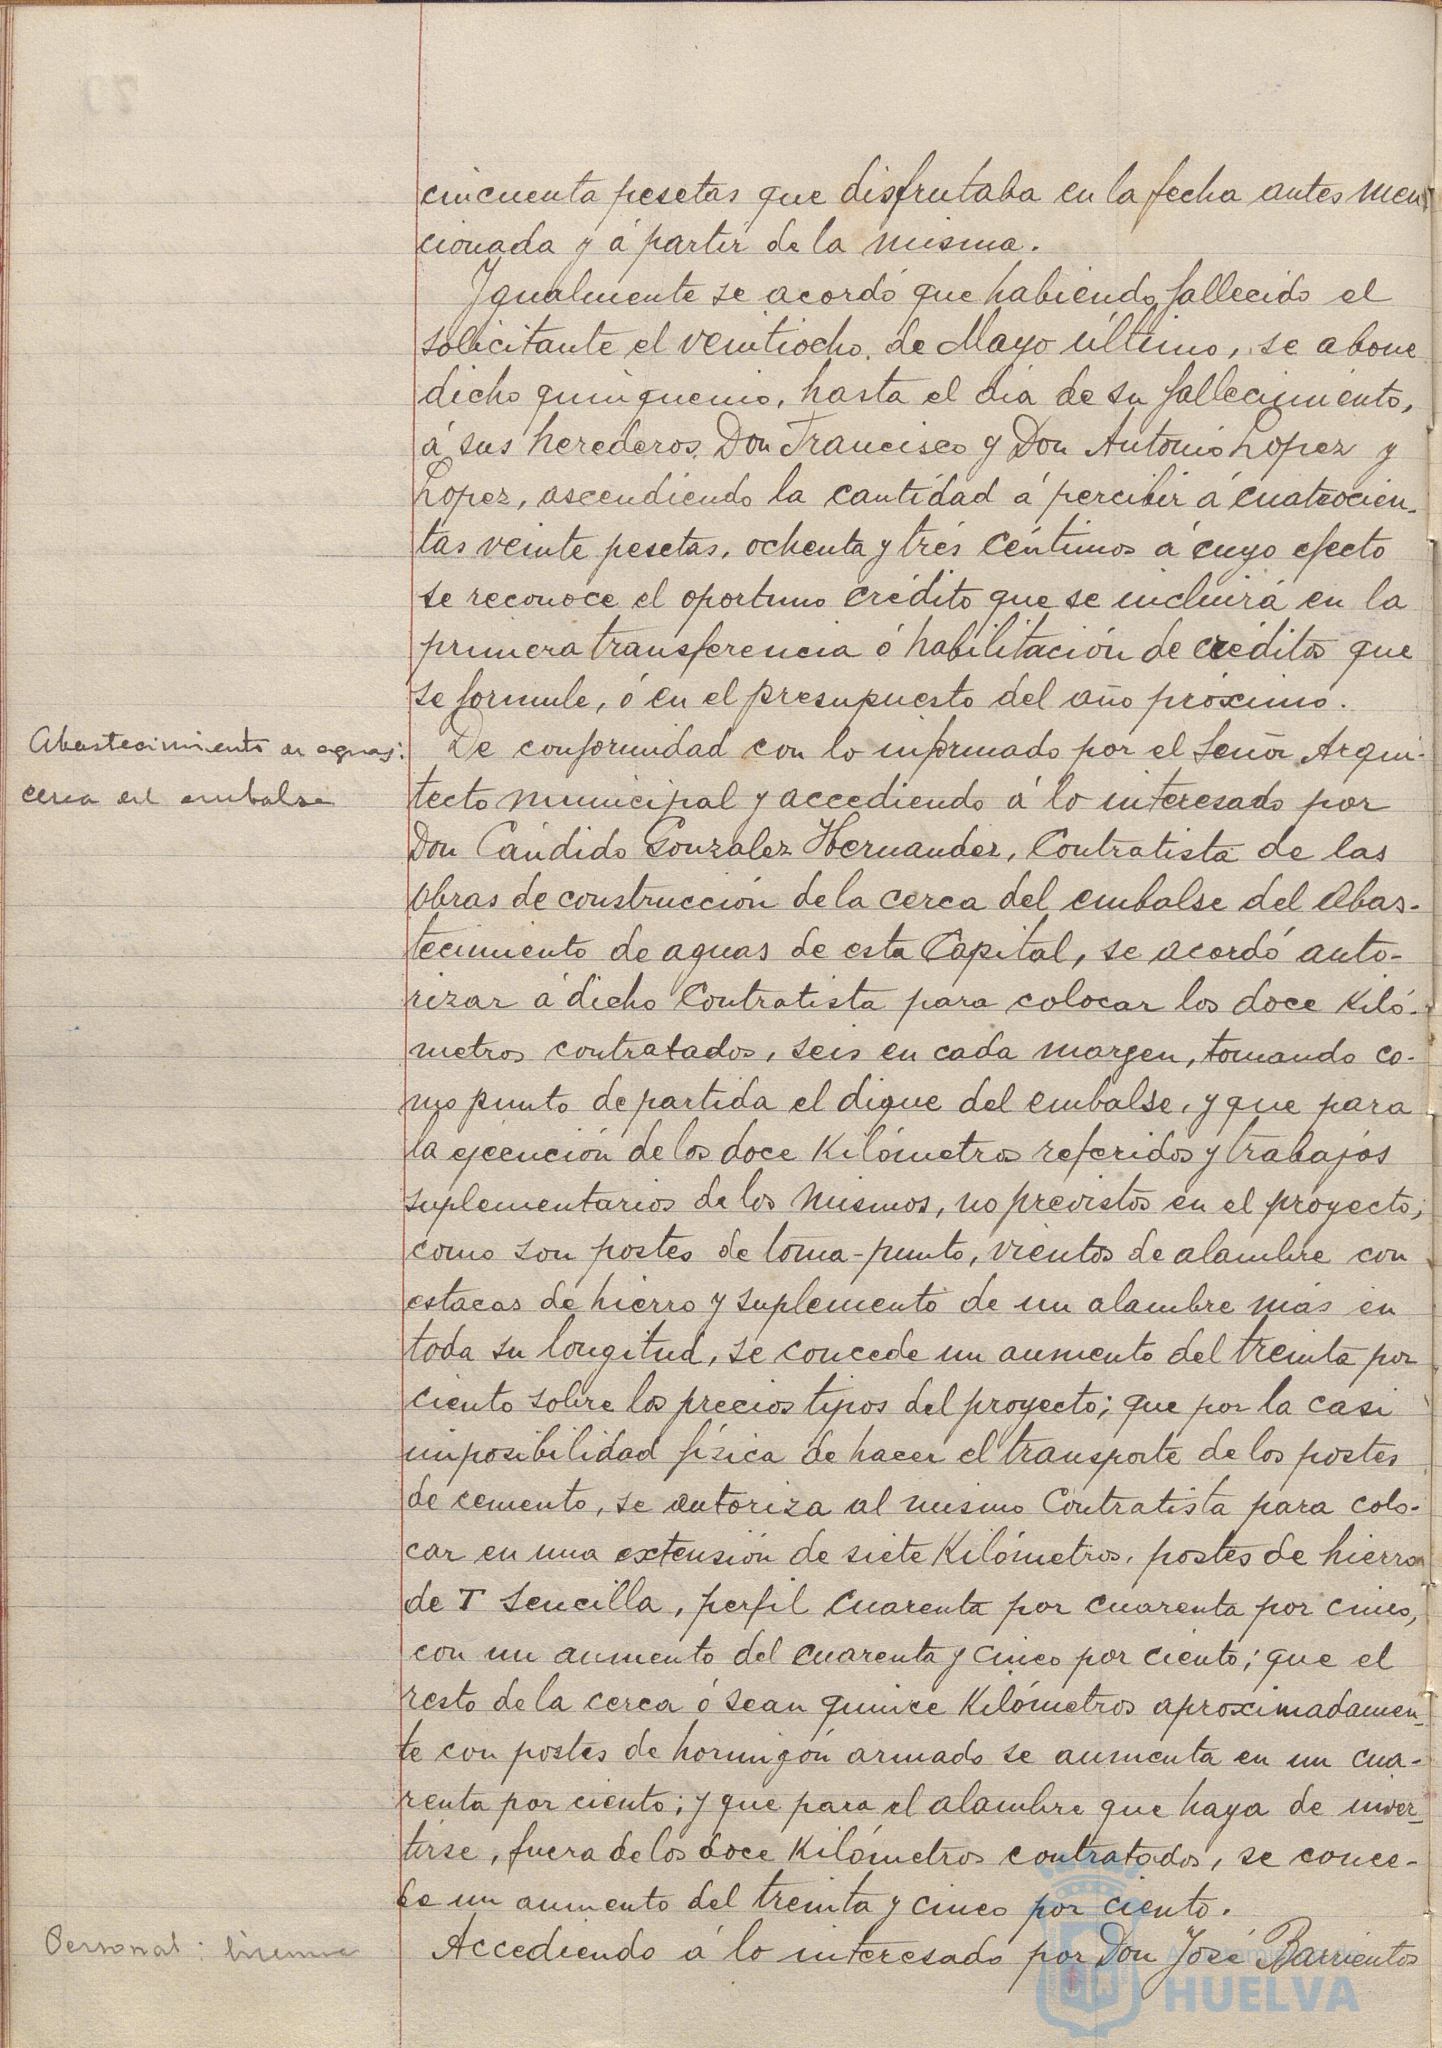 cincuenta pesetas que disfrutaba en la fecha antes men-
cionada y á partir de la misma.
Igualmente se acordó que habiendo fallecido el
solicitante el veintiocho de Mayo último, se abone
dicho quinquenio, hasta el dia de su fallecimiento,
á sus herederos Don Francisco y Don Antonio Lopez y
Lopez, ascendiendo la cantidad á percibir á cuatrocien-
tas veinte pesetas, ochenta y trés céntimos á cuyo efecto
se reconoce el oportuno crédito que se incluirá en la
primera transferencia ó habilitación de créditos que
se formule, ó en el presupuesto del año próximo.
Abastecimiento de aguas:
cerca del embalse
De conformidad con lo informado por el Señor Arqui-
tecto municipal y accediendo á lo interesado por
Don Cándido Gonzalez Hernandez, Contratista de las
obras de construcción de la cerca del embalse del Abas-
tecimiento de aguas de esta Capital, se acordó auto-
rizar á dicho Contratista para colocar los doce Kiló-
metros contratados, seis en cada margen, tomando co-
mo punto de partida el dique del embalse, y que para
la ejecución de los doce Kilómetros referidos y trabajos
suplementarios de los mismos, no previstos en el proyecto,
como son postes de toma-punto, vientos de alambre con
estacas de hierro y suplemento de un alambre más en
toda su longitud, se concede un aumento del treinta por
ciento sobre los precios tipos del proyecto; que por la casi
imposibilidad física de hacer el transporte de los postes
de cemento, se autoriza al mismo Contratista para colo-
car en una extensión de siete Kilómetros, postes de hierro
de T sencilla, perfil cuarenta por cuarenta por cinco,
con un aumento del cuarenta y cinco por ciento; que el
resto de la cerca ó sean quince Kilómetros aproximadamen-
te con postes de hormigón armado se aumenta en un cua-
renta por ciento; y que para el alambre que haya de inver-
tirse, fuera de los doce Kilómetros contratados, se conce-
de un aumento del treinta y cinco por ciento.
Personal: licencia
Accediendo á lo interesado por Don José Barrientos
Ayuntamiento de
HUELVA